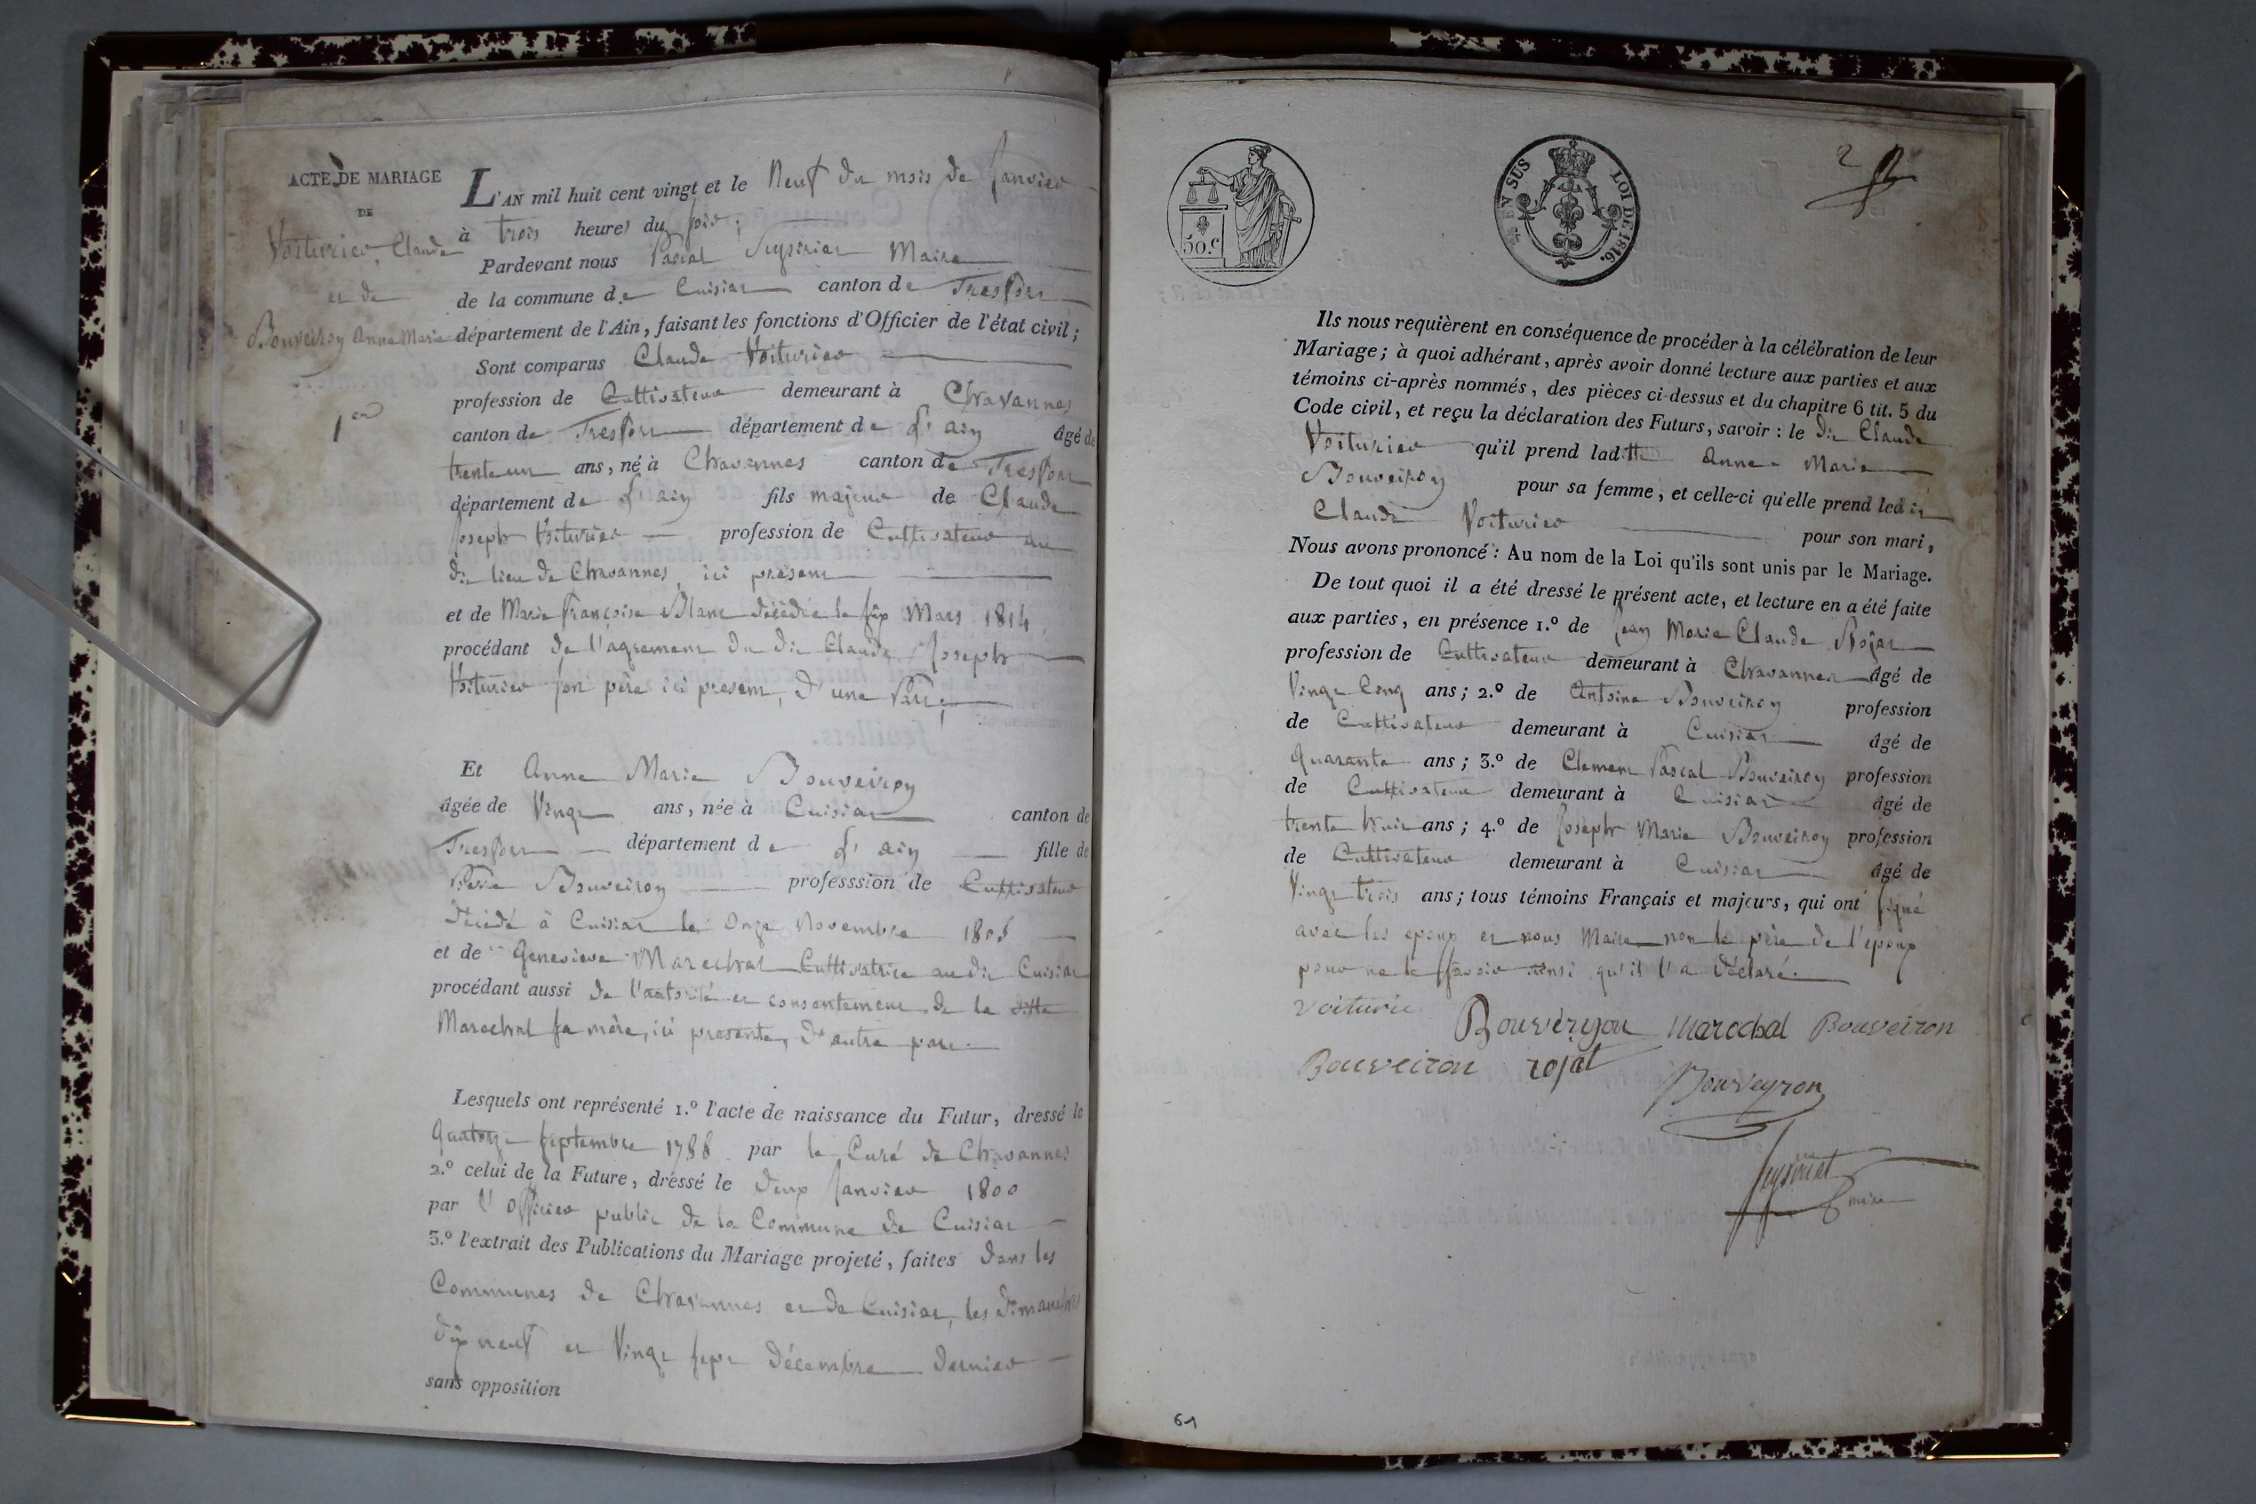 ACTE DE MARIAGE
DE
Voiturier, Claude
et de
Bouveiron Anne Marie
1er
L'AN mil huit cent vingt et le Neuf du mois de Janvier
à trois heures du soir ;
Pardevant nous Pascal Seysiriat Maire
de la commune de Cuisiat canton de Treffort
département de l'Ain, faisant les fonctions d'Officier de l'état civil ;
Sont comparus Claude Voiturier
profession de Cultivateur demeurant à Chavannes
canton de Treffort département de L'ain âgé de
trente un ans, né à Chavannes canton de Treffort
département de L'ain fils majeur de Claude
Joseph Voiturier profession de Cultivateur au
dit lieu de Chavannes, ici présent
et de Marie Françoise Blanc décédée le six Mars 1814
procédant de l'agrement du dit Claude Joseph
Voiturier son père ici present, d'une Part ;
Et Anne Marie Bouveiron
âgée de Vingt ans, née à Cuisiat canton de
Treffort département de L'ain fille de
Bouveiron professsion de Cultivateur
décédé à Cuisiat le Onze Novembre
et de Genevieve Marechal Cultivatrice au dit Cuisiat
procédant aussi de l'autorité et consentement de la ditte
Marechal sa mère, ici presente, d'autre part.
Lesquels ont représenté 1.º l'acte de naissance du Futur, dressé le
Quatorze Septembre 1788 par le Curé de Chavannes
2.º celui de la Future, dressé le deux Janvier 1800
par l'Officier public de la Commune de Cuisiat
3.º l'extrait des Publications du Mariage projeté, faites dans les
Communes de Chavannes et de Cuisiat, les dimanches
dix neuf et Vingt sept décembre dernier
sans opposition
50.c
EN SUS
LOI DE 1816.
2
Ils nous requièrent en conséquence de procéder à la célébration de leur
Mariage ; à quoi adhérant, après avoir donné lecture aux parties et aux
témoins ci-après nommés, des pièces ci-dessus et du chapitre 6 tit. 5 du
Code civil, et reçu la déclaration des Futurs, savoir : le dit Claude
Voiturier qu'il prend laditte Anne Marie
Bouveiron pour sa femme, et celle-ci qu'elle prend ledit
Claude Voiturier pour son mari,
Nous avons prononcé : Au nom de la Loi qu'ils sont unis par le Mariage.
De tout quoi il a été dressé le présent acte, et lecture en a été faite
aux parties, en présence 1.º de Jean Marie Claude Rojat
profession de Cultivateur demeurant à Chavannes âgé de
Vingt Cinq ans ; 2.º de Antoine Bouveiron profession
de Cultivateur demeurant à Cuisiat âgé de
Quarante ans ; 3.º de Clement Pascal Bouveiron profession
de Cultivateur demeurant à Cuisiat âgé de
trente huit ans ; 4.º de Joseph Marie Bouveiron profession
de Cultivateur demeurant à Cuisiat âgé de
Vingt trois ans ; tous témoins Français et majeurs, qui ont signé
avec les epoux et nous Maire non le père de l'epoux
pour ne le savoir ainsi qu'il l'a déclaré.
voiturie
Bouveryon marechal Bouveiron
Bouveiron rojat
Bouveyron
Seysiriat
maire
61